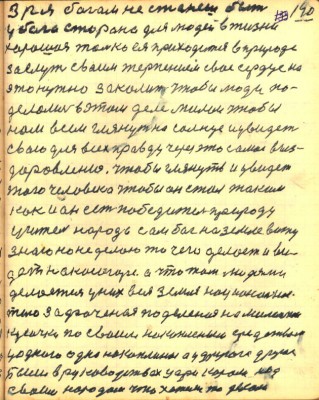 190
зря богам не станем быт
у бога сторона для людей в жизни
хорошая только ей приходется в природе
заслуг своим терпением свае сердце на
это нужно закалит чтобы люди по-
делали в этом деле милом чтобы
нам всем глянут на солнце и увидет
свою для всех правду через это самое выз-
доровлению. чтобы глянут и увидет
того человека чтобы он стал таким
как и он ест победител природу
учител народа сам бог на земле вижу
знаю но не делаю то чего делает и ви-
дят на а что там людями
делается у них вся земля
поделения на
по своим накопленым средствам
у одного одно накоплено а у другого другое
были в руководствах цари над
своим народом что хотели то делали